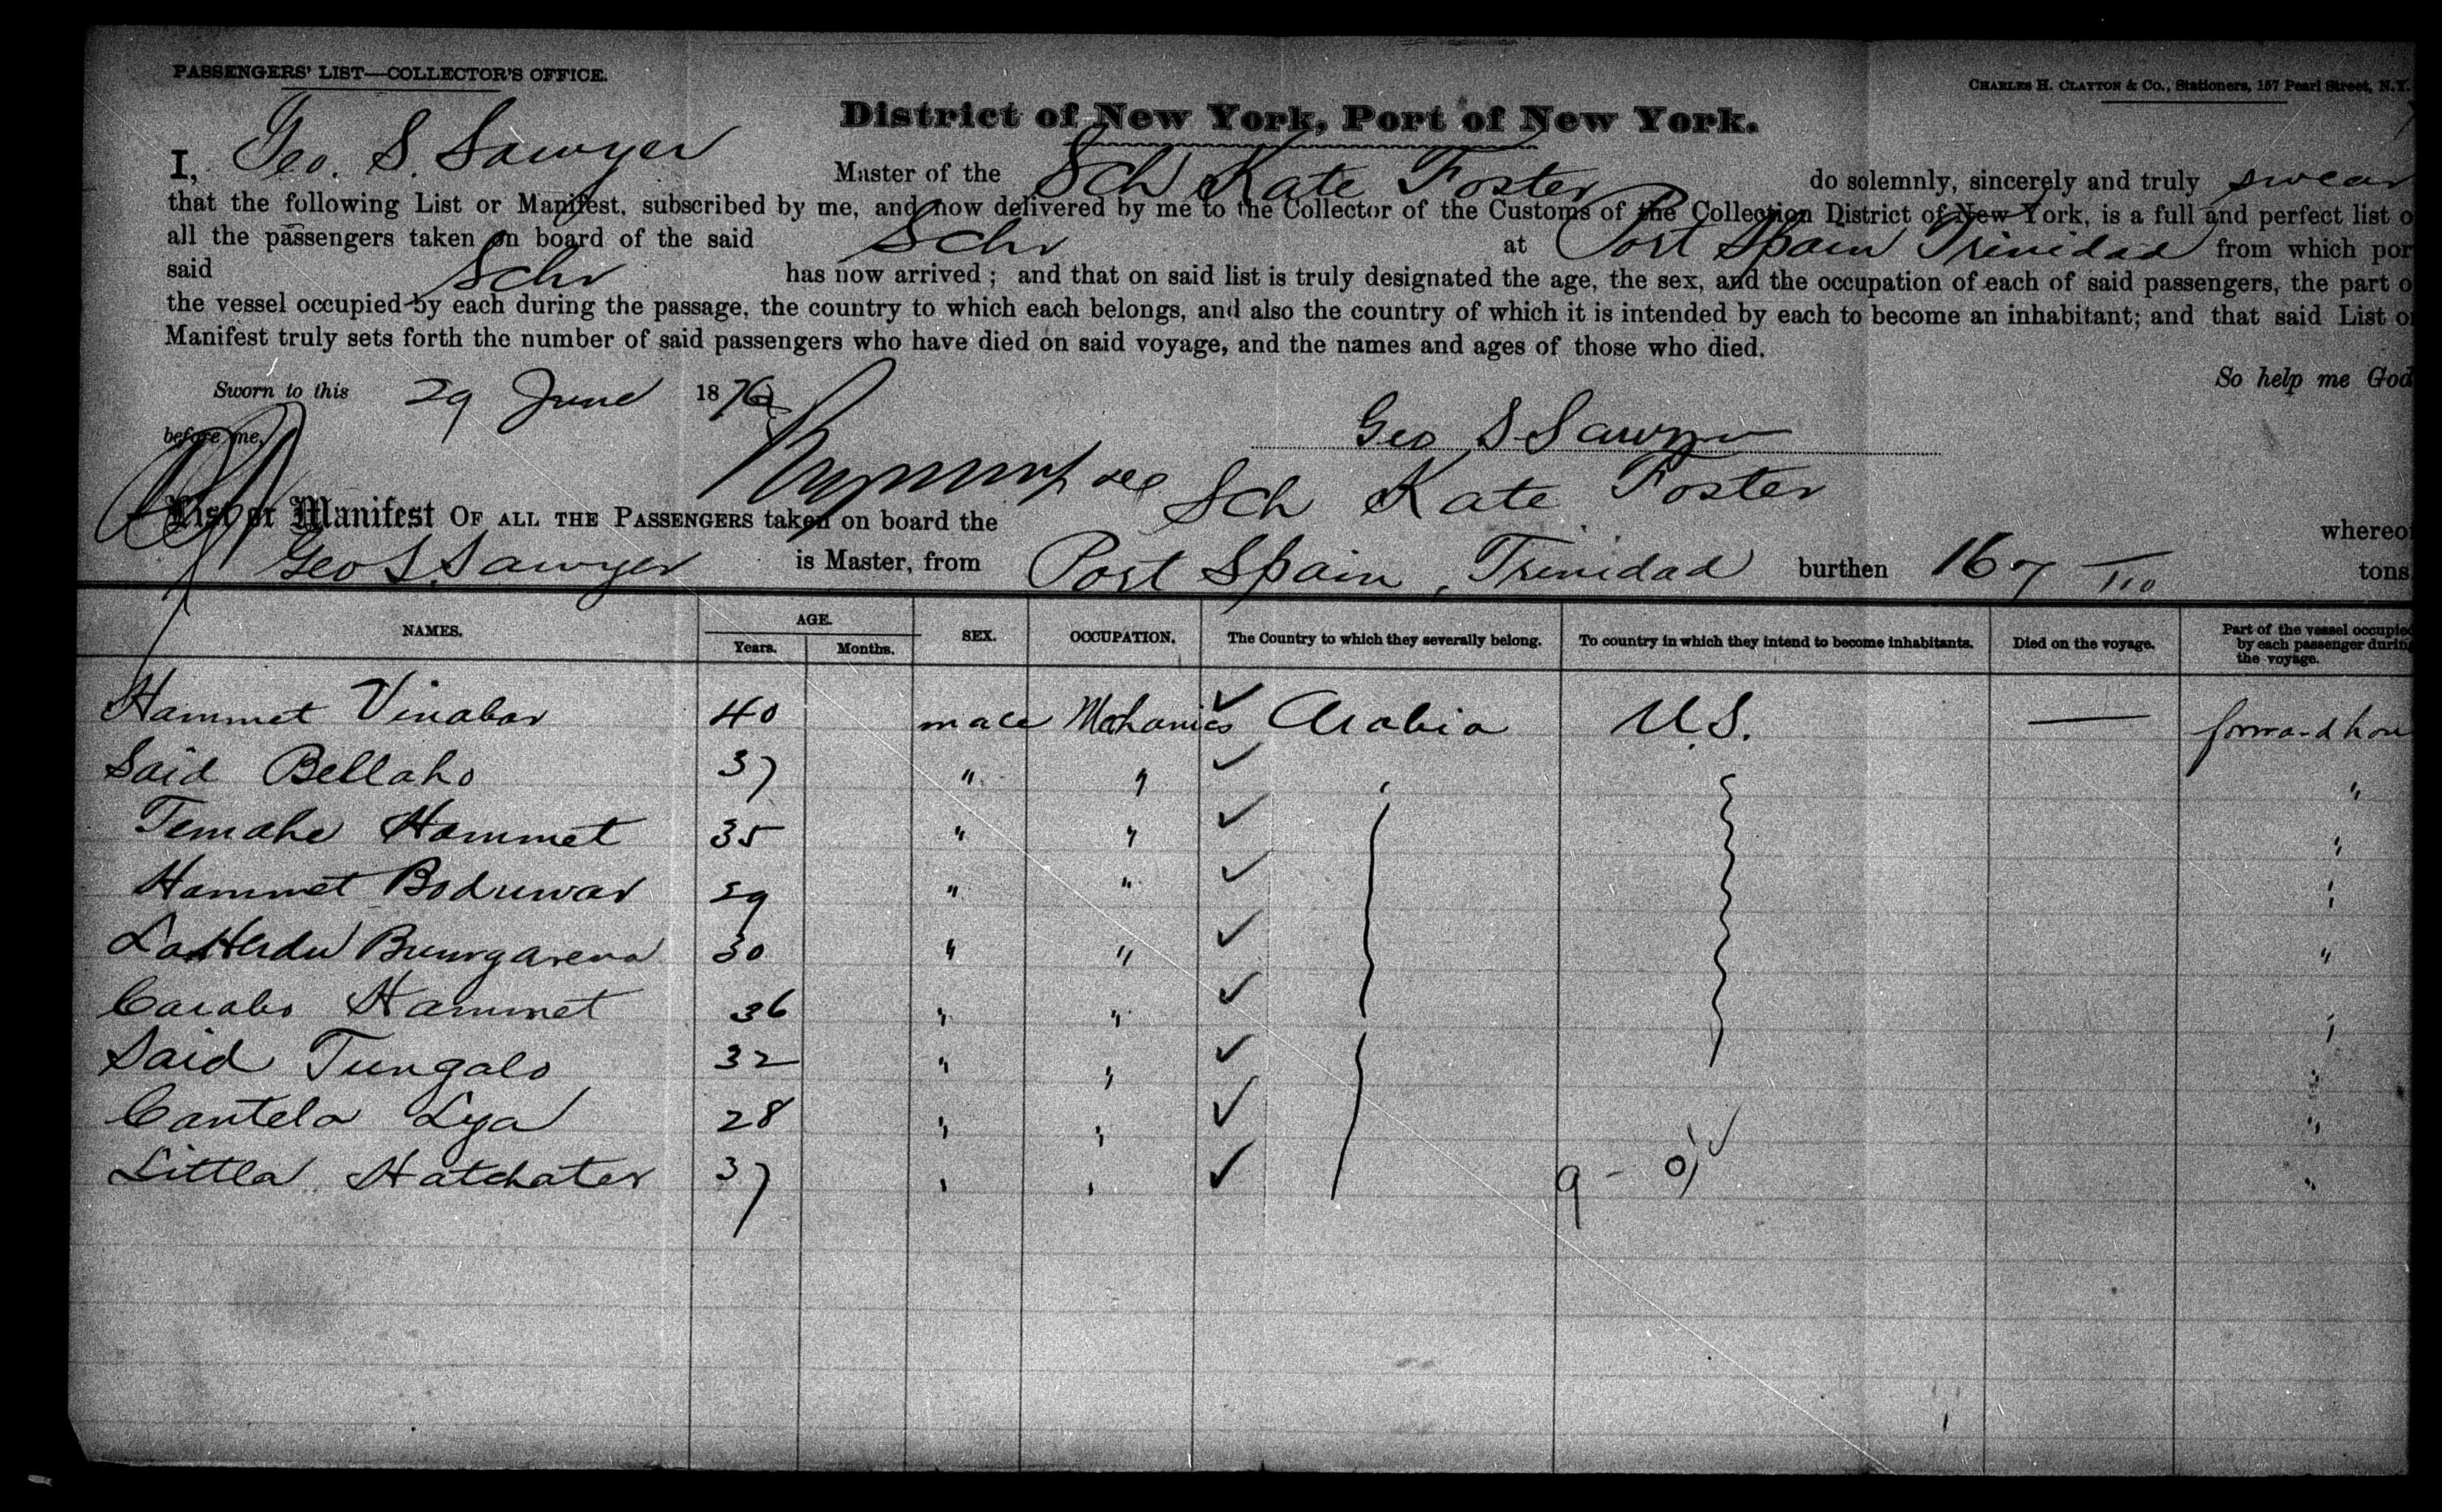 PASSENGERS' LIST—COLLECTOR'S OFFICE.
CHARLES H. CLAYTON & Co., Stationers, 157 Pearl Street, N.Y.
District of New York, Port of New York.
I, Geo. S. Sawyer Master of the Sch Kate Foster do solemnly, sincerely and truly swear
that the following List or Manifest, subscribed by me, and now delivered by me to the Collector of the Customs of the Collection District of New York, is a full and perfect list o
all the passengers taken on board of the said Schr at Port Spain Trinidad from which por
said Schr has now arrived; and that on said list is truly designated the age, the sex, and the occupation of each of said passengers, the part o
the vessel occupied by each during the passage, the country to which each belongs, and also the country of which it is intended by each to become an inhabitant; and that said List o
Manifest truly sets forth the number of said passengers who have died on said voyage, and the names and ages of those who died.
So help me God
Sworn to this 29 June 1876
before me,
Geo S Sawyer
List or Manifest OF ALL THE PASSENGERS taken on board the Sch Kate Foster whereof
Geo S. Sawyer is Master, from Port Spain, Trinidad burthen 167 tons
NAMES. AGE. Years. Months. SEX. OCCUPATION. The Country to which they severally belong. To country in which they intend to become inhabitants. Died on the voyage. Part of the vessel occupied by each passenger during the voyage.
Hammet Vinabar 40 male Mechanics ✓ Arabia U.S. — forward hou
Said Bellaho 37 " " ✓ "
Temahe Hammet 35 " " ✓ "
Hammet Boduwar 29 " " ✓ "
30 " " ✓ "
Caiabo Hammet 36 " " ✓ "
Said Tungalo 32 " " ✓ "
Cantela Lya 28 " " ✓ "
Littla Hatchater 37 " " ✓ "
9 -